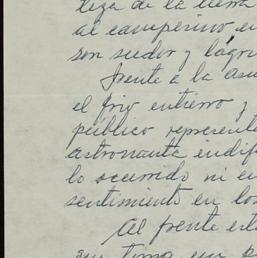 teza de la tierra
al campesino en
son sudor y lágri
frente a la asu
el frío entierro y
público represent
astronauta indife
lo ocurrido ni en
sentimiento en los
Al frente est
su toma un p